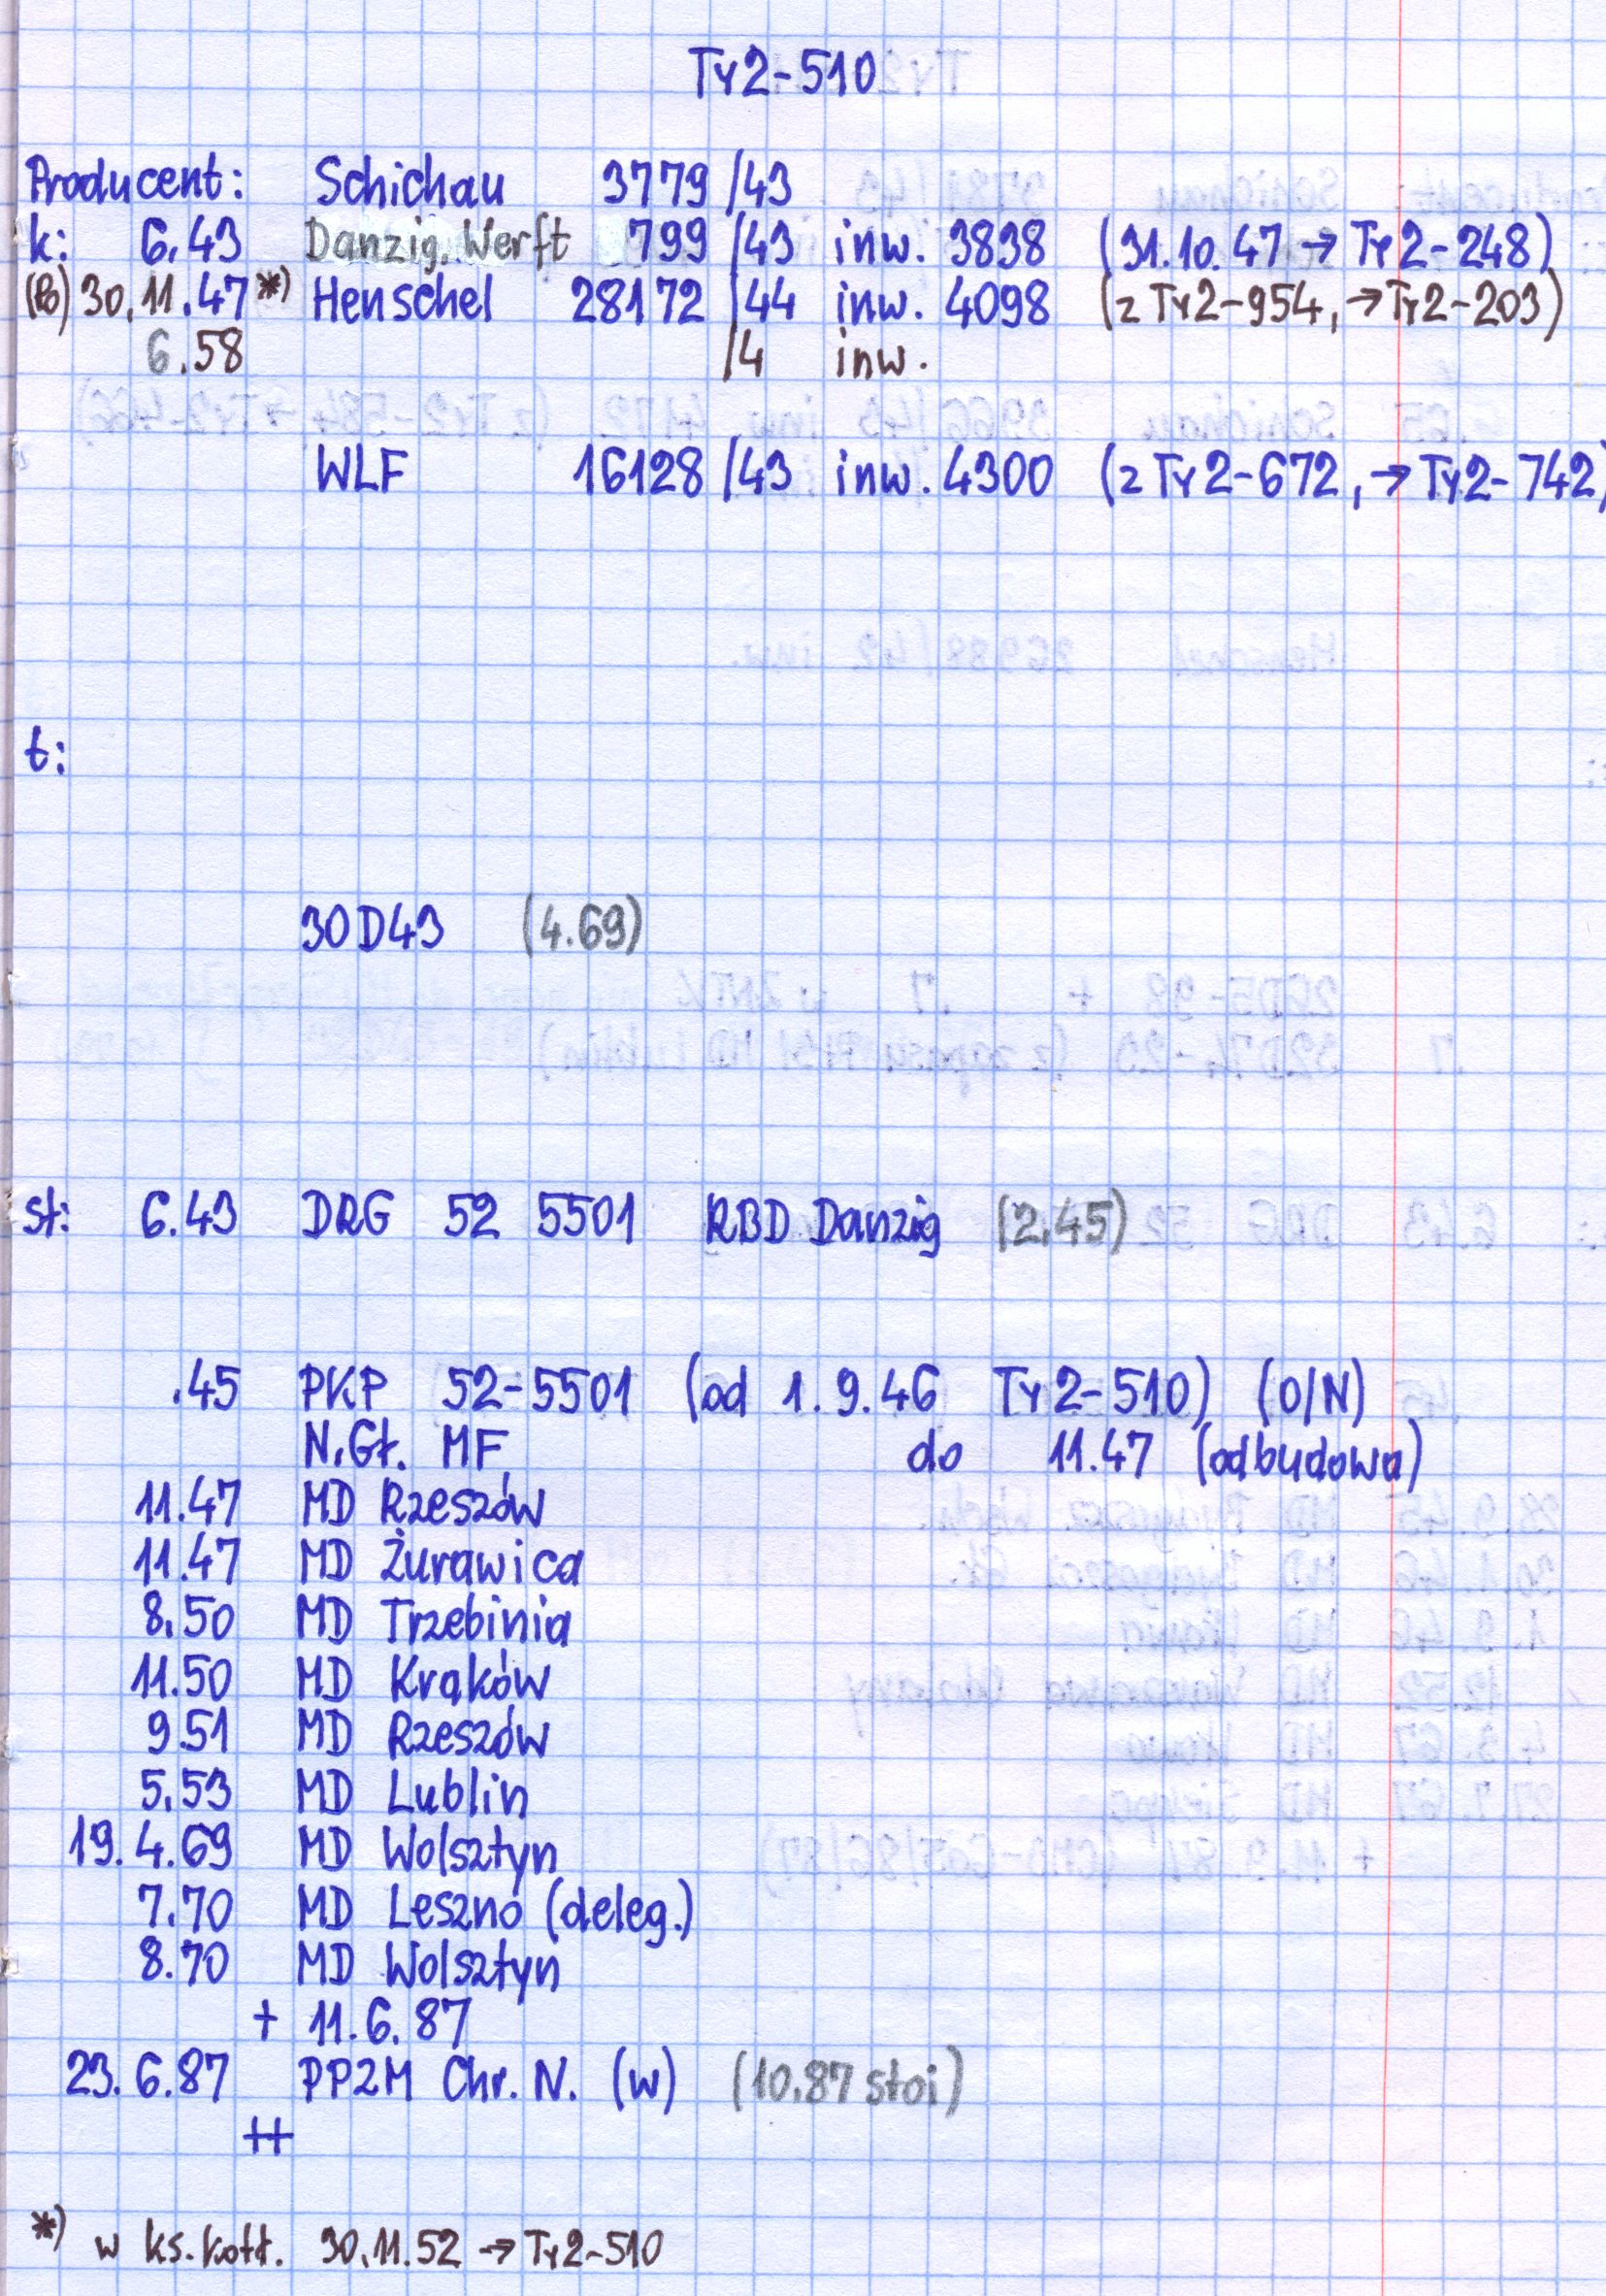 Ty2-510
Producent: Schichau 3779 /43
k: 6.43 Danzig. Werft 799 /43 inw. 3838 (31.10.47 → Ty2-248)
(Po) 30.11.47 *) Henschel 28172 /44 inw. 4098 (z Ty2-954, → Ty2-203)
6.58 /4 inw.
WLF 16128 /43 inw. 4300 (z Ty2-672, → Ty2-742)
t:
30D43 (4.69)
st: 6.43 DRG 52 5501 RBD Danzig (2.45)
.45 PKP 52-5501 (od 1.9.46 Ty2-510) (O/N)
N.Gł. MF do 11.47 (odbudowa)
11.47 MD Rzeszów
11.47 MD Żurawica
8.50 MD Trzebinia
11.50 MD Kraków
9.51 MD Rzeszów
5.53 MD Lublin
19.4.69 MD Wolsztyn
7.70 MD Leszno (deleg.)
8.70 MD Wolsztyn
+ 11.6.87
23.6.87 PPZM Chr. N. (w) (10.87 stoi)
++
*) w ks. kotł. 30.11.52 → Ty2-510